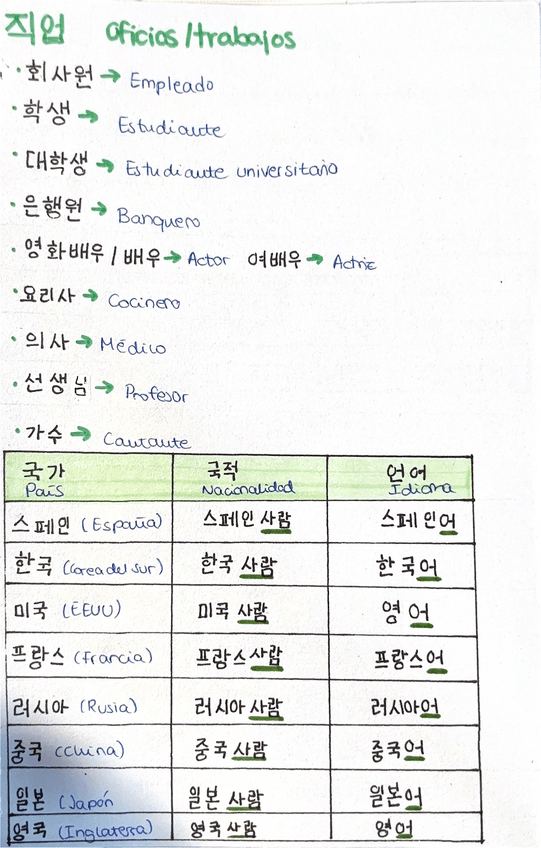 직업 Oficios/trabajos
· 회사원 → Empleado
· 학생 → Estudiante
· 대학생 → Estudiante universitario
· 은행원 → Banquero
· 영화배우 / 배우 → Actor 여배우 → Actriz
· 요리사 → Cocinero
· 의사 → Médico
· 선생님 → Profesor
· 가수 → Cantante
국가 국적 언어
País Nacionalidad Idioma
스페인 (España) 스페인 사람 스페인어
한국 (Corea del Sur) 한국 사람 한국어
미국 (EEUU) 미국 사람 영어
프랑스 (Francia) 프랑스 사람 프랑스어
러시아 (Rusia) 러시아 사람 러시아어
중국 (China) 중국 사람 중국어
일본 (Japón 일본 사람 일본어
영국 (Inglaterra) 영국 사람 영어